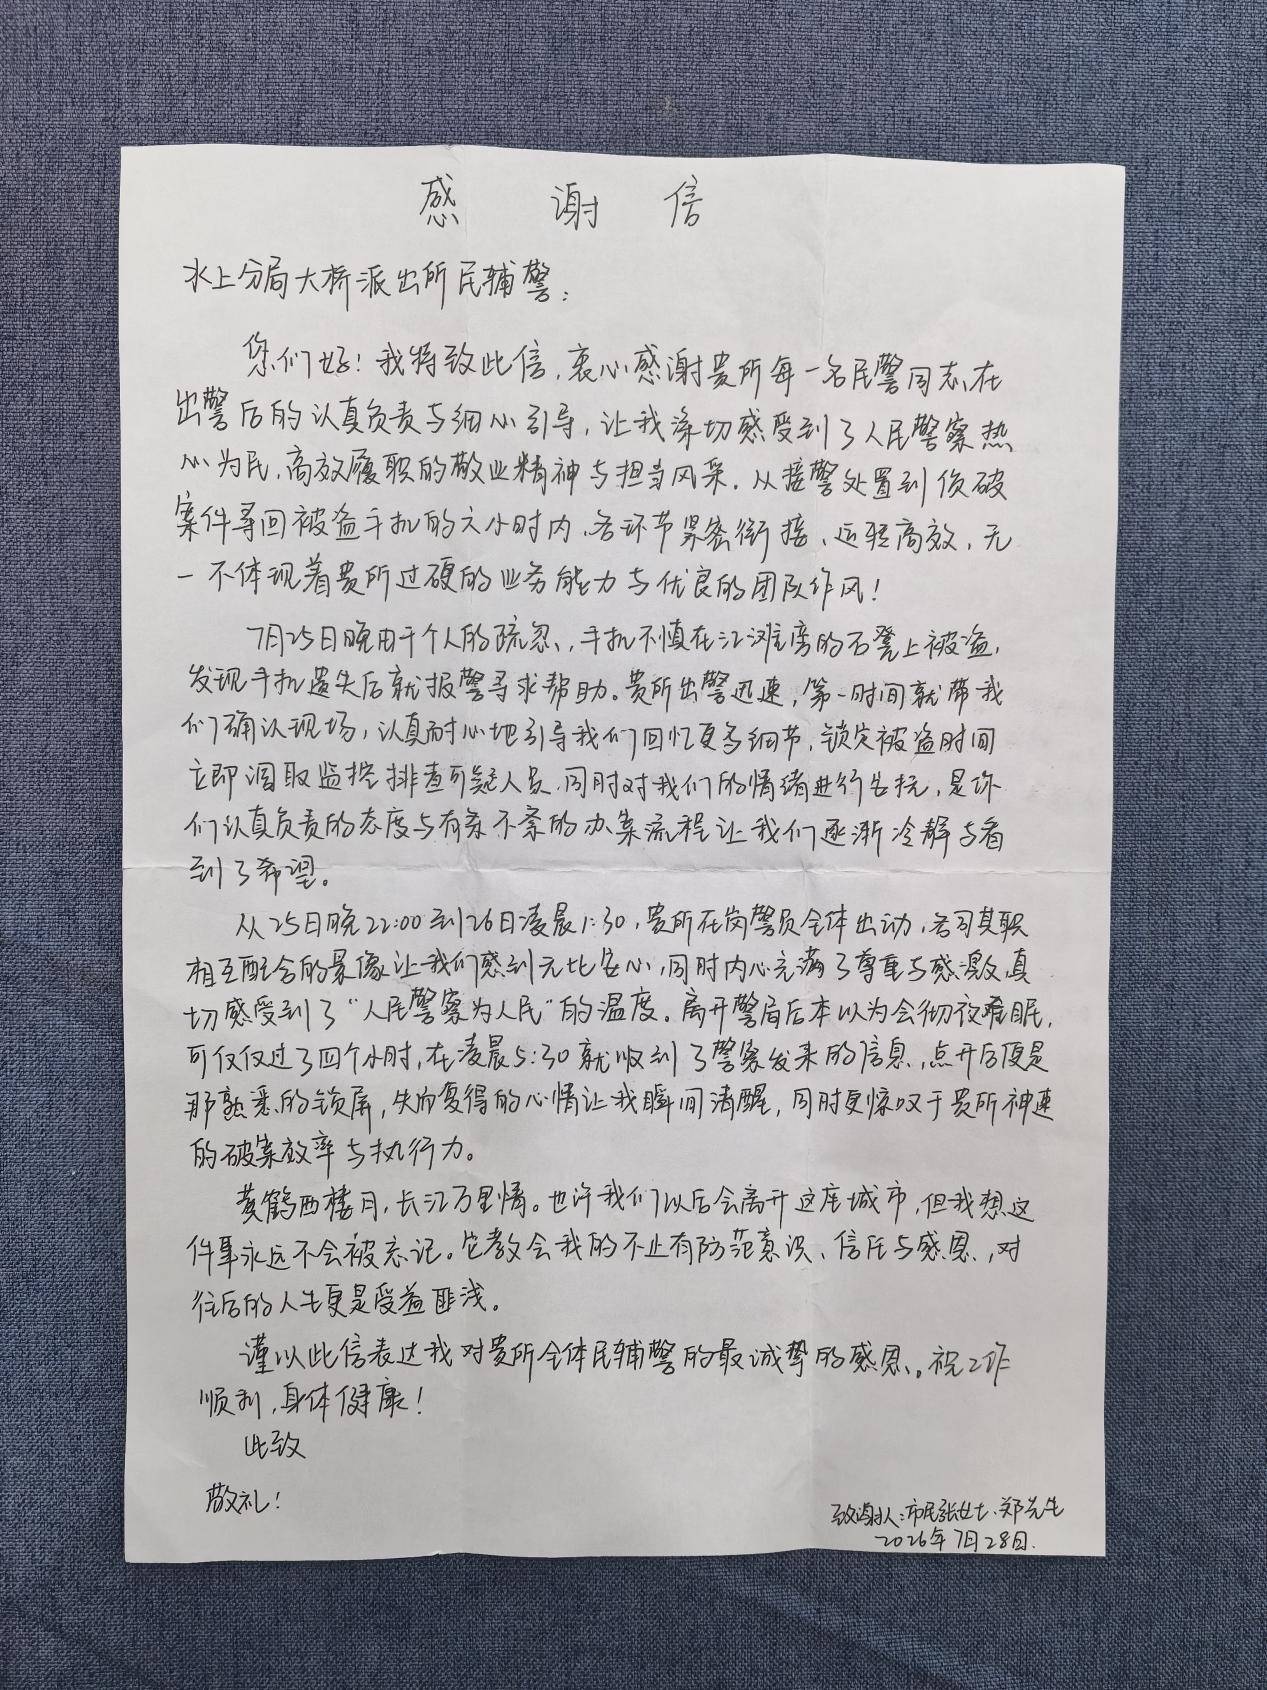 感谢信
水上分局大桥派出所民辅警:
您们好!我特致此信,衷心感谢贵所每一名民警同志、在
出警后的认真负责与细心引导,让我深切感受到了人民警察热
心为民、高效履职的敬业精神与担当风采。从接警处置到侦破
案件寻回被盗手机的六小时内、各环节紧密衔接、运转高效,无
一不体现着贵所过硬的业务能力与优良的团队作风!
7月25日晚由于个人的疏忽,手机不慎在江滩旁的石凳上被盗,
发现手机遗失后就报警寻求帮助。贵所出警迅速,第一时间就带我
们确认现场,认真耐心地引导我们回忆更多细节,锁定被盗时间
立即调取监控排查可疑人员,同时对我们的情绪进行安抚,是你
们认真负责的态度与有条不紊的办案流程让我们逐渐冷静与看
到了希望。
从25日晚22:00到26日凌晨1:30,贵所在岗警员全体出动,各司其职
相互配合的景像让我们感到无比安心,同时内心充满了尊重与感激,真
切感受到了“人民警察为人民”的温度。离开警局后本以为会彻夜难眠,
可仅仅过了四个小时,在凌晨5:30就收到了警察发来的信息,点开后便是
那熟悉的锁屏,失而复得的心情让我瞬间清醒,同时更惊叹于贵所神速
的破案效率与执行力。
黄鹤西楼月,长江万里情。也许我们以后会离开这座城市,但我想这
件事永远不会被忘记。它教会我的不止有防范意识、信任与感恩,对
往后的人生更是受益匪浅。
谨以此信表达我对贵所全体民辅警的最诚挚的感恩、。祝工作
顺利,身体健康!
此致
敬礼!
致谢人:市民张女士、郑先生
2026年7月28日.